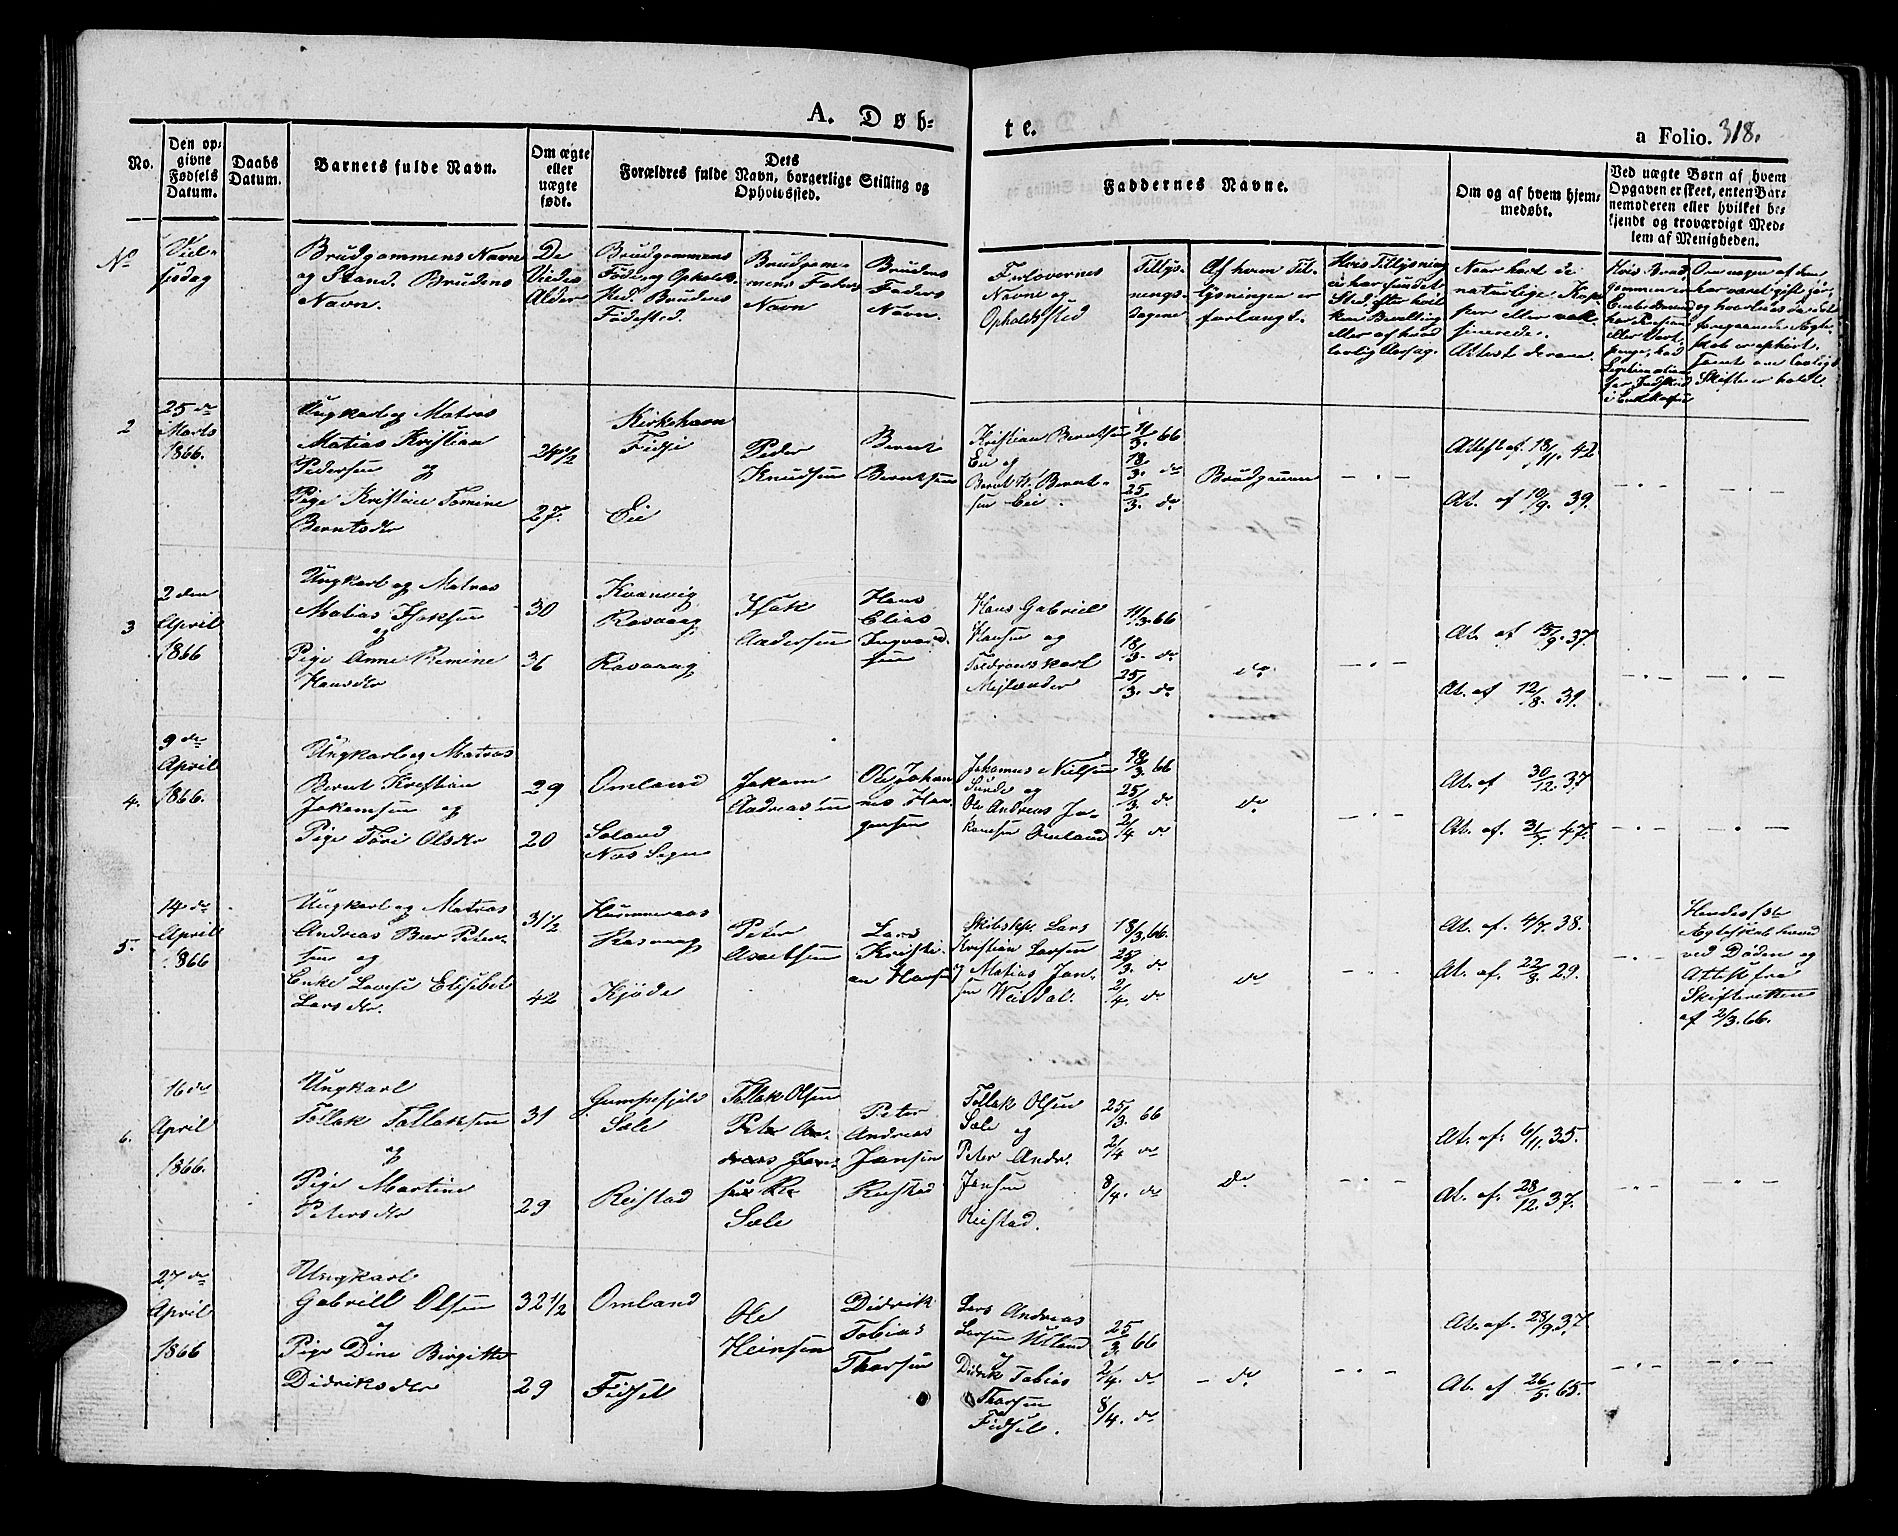 A. Døb-
te.
a Folio. 318.
No.
Den op-
givne
Fødsels
Datum.
Daabs
Datum.
Barnets fulde Navn.
Om ægte
eller
uægte
født.
Dets
Forældres fulde Navn, borgerlige Stilling og
Opholdssted.
Faddernes Navne.
Om og af hvem hjem-
medøbt.
Ved uægte Børn af hvem
Opgaven er skeet, enten Bar-
nemoderen eller hvilket be-
kjendt og troværdigt Med-
lem af Menigheden.
No
Viel-
sesdag
Brudgommens Navn
og Stand. Brudens
Navn.
De
Viedes
Alder
Brudgommens
Føde og Opholds
sted. Brudens
Fødested.
Brudgom-
mens Faders
Navn
Brudens
Faders
Navn.
Forlovernes
Navne og
Opholdssted
Tillys-
nings-
dagene
Af hvem Til-
lysningen er
forlangt.
Hvis Tillysning
ei har fundet
Sted, efter hvil-
ken Bevilling
eller af hvad
lovlig Aarsag.
Naar havt de
naturlige Kop-
per eller vak-
sinerede.
Attest derom.
2
25 de
Marts
1866.
Ungkarl og Matros
Matias Kristian
Pedersen og
Pige Kristine Tomine
Berntsdtr
24 1/2
27.
Kirkehavn
Fidse
Eie
Peder
Knudsen
Bernt
Berntsen
Kristian Berntsen
Eie og
Bernt H. Bernt-
sen Eie.
11/3. 66
18/3. do
25/3. do
Brudgommen
- . -
Attest af 18/11. 42
At. af 10/9. 39.
- . -
- . -
3
2 den
April
1866
Ungkarl og Matros
Matias Isaksen
og
Pige Anne Remine
Hansdtr
30
36
Kvanvig
Rasvaag
Rasvaag
Isak
Andersen
Hans
Elias
Ingvard-
sen
Hans Gabriel
Hansen og
Karl
Mejlænder
11/3. 66
18/3. do
25/3. do
do
- . -
At. af 15/9. 37.
At. af 12/8. 39.
- . -
- . -
4.
9 de
April
1866.
Ungkarl og Matros
Bernt Kristian
Jakobsen og
Pige Tori Olsdtr
29
20
Omland
Soland
Næs Sogn
Jakom
Andreassen
Ole Johan
nes Haa
gensen
Johannes Nielsen
Sunde og
Ole Andreas Ja-
komsen Omland
18/3. 66
25/3. do
2/4 do
do
At. af 30/12. 37
At. af. 31/7. 47.
- . -
- . -
5.
14 de
April
1866
Ungkarl og Matros
Andreas Beer Peter-
sen og
Enke Lovise Elisabet
Larsdtr.
31 1/2
42
Hummeraas
Rasvaag
Kjøde
Peter
Lars
Kristi-
an Hansen
Skibskp. Lars
Kristian Larsen
og Matias Jan-
sen Weisdal.
18/3. 66.
25/3. do
2/4. do
do
- . -
At. af. 4/7. 38.
At. af. 22/8. 29.
- . -
Hendes 1ste
Ægteskab hævd
ved Døden og
Attest fra
Skifteretten
af 2/3. 66.
6.
16 de
April
1866.
Ungkarl
Tollak Tollaksen
og
Pige Martine
Petersdtr
31
29
Gumpefjeld
Sæle
Reistad
Tollak Olsen
Sæle
Peter
Andreas
Jansen
Reistad
Tollak Olsen
Sæle og
Peter Andr.
Jansen
Reistad.
25/3. 66
2/4 do
8/4. do
do
- . -
At. af. 6/11. 35.
At. af. 28/12. 37.
- . -
- . -
27 de
April
1866
Ungkarl
Gabriell Olsen
og
Pige Dine Birgitte
Didriksdtr
32 1/2
29
Omland
Fidsel
Ole
Heinsen
Didrik
Tobias
Thorsen
Lars Andreas
Larsen Utland
og
Didrik Tobias
Thorsen
Fidsel.
25/3. 66
2/4. do
8/4. do
- do
- . -
At. af. 28/9. 37
At. af 26/5. 65.
- . -
- . -